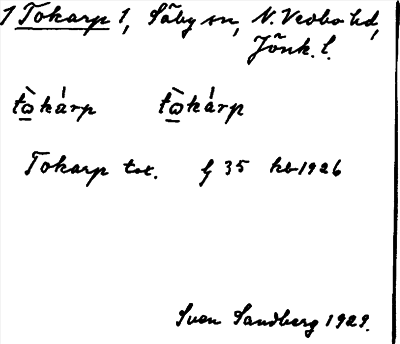 1 Tokarp 1, Säby sn, N. Vedbo hd,
Jönk. l.
tὼ̱kárp tὼ̱kárp
Tokarp tot. G 35 kb 1926
Sven Sandberg 1929.